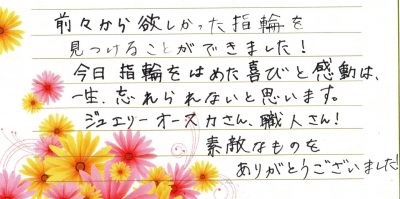 前々から欲しかった指輪を
見つけることができました!
今日指輪をはめた喜びと感動は、
一生、忘れられないと思います。
ジュエリーオースカさん、職人さん!
素敵なものを
ありがとうございました!